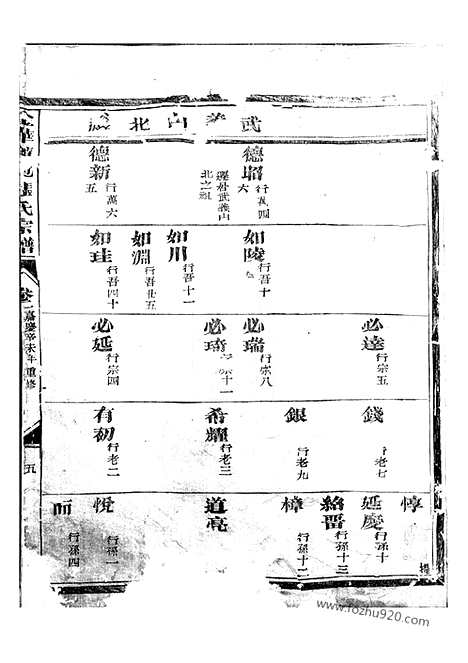 武義山北派
德昭 行萬四六
遷居武義山北之祖
德新 行萬六五
如陵 行吾十
如川 行吾十一
如淵 行吾廿五
如珪 行吾四十
必達 行宗五
必瑞 行宗八
必琦 宗十一
必延 行宗四
錢 行老七
銀 行老九
希耀 行老三
有初 行老二
惇
延慶 行孫十
紹晋 行孫十三
樟 行孫十二
道亮
悅 行孫一
而 行孫四
氏宗譜
卷一 嘉慶辛未年重修
五
www.fozhu920.com